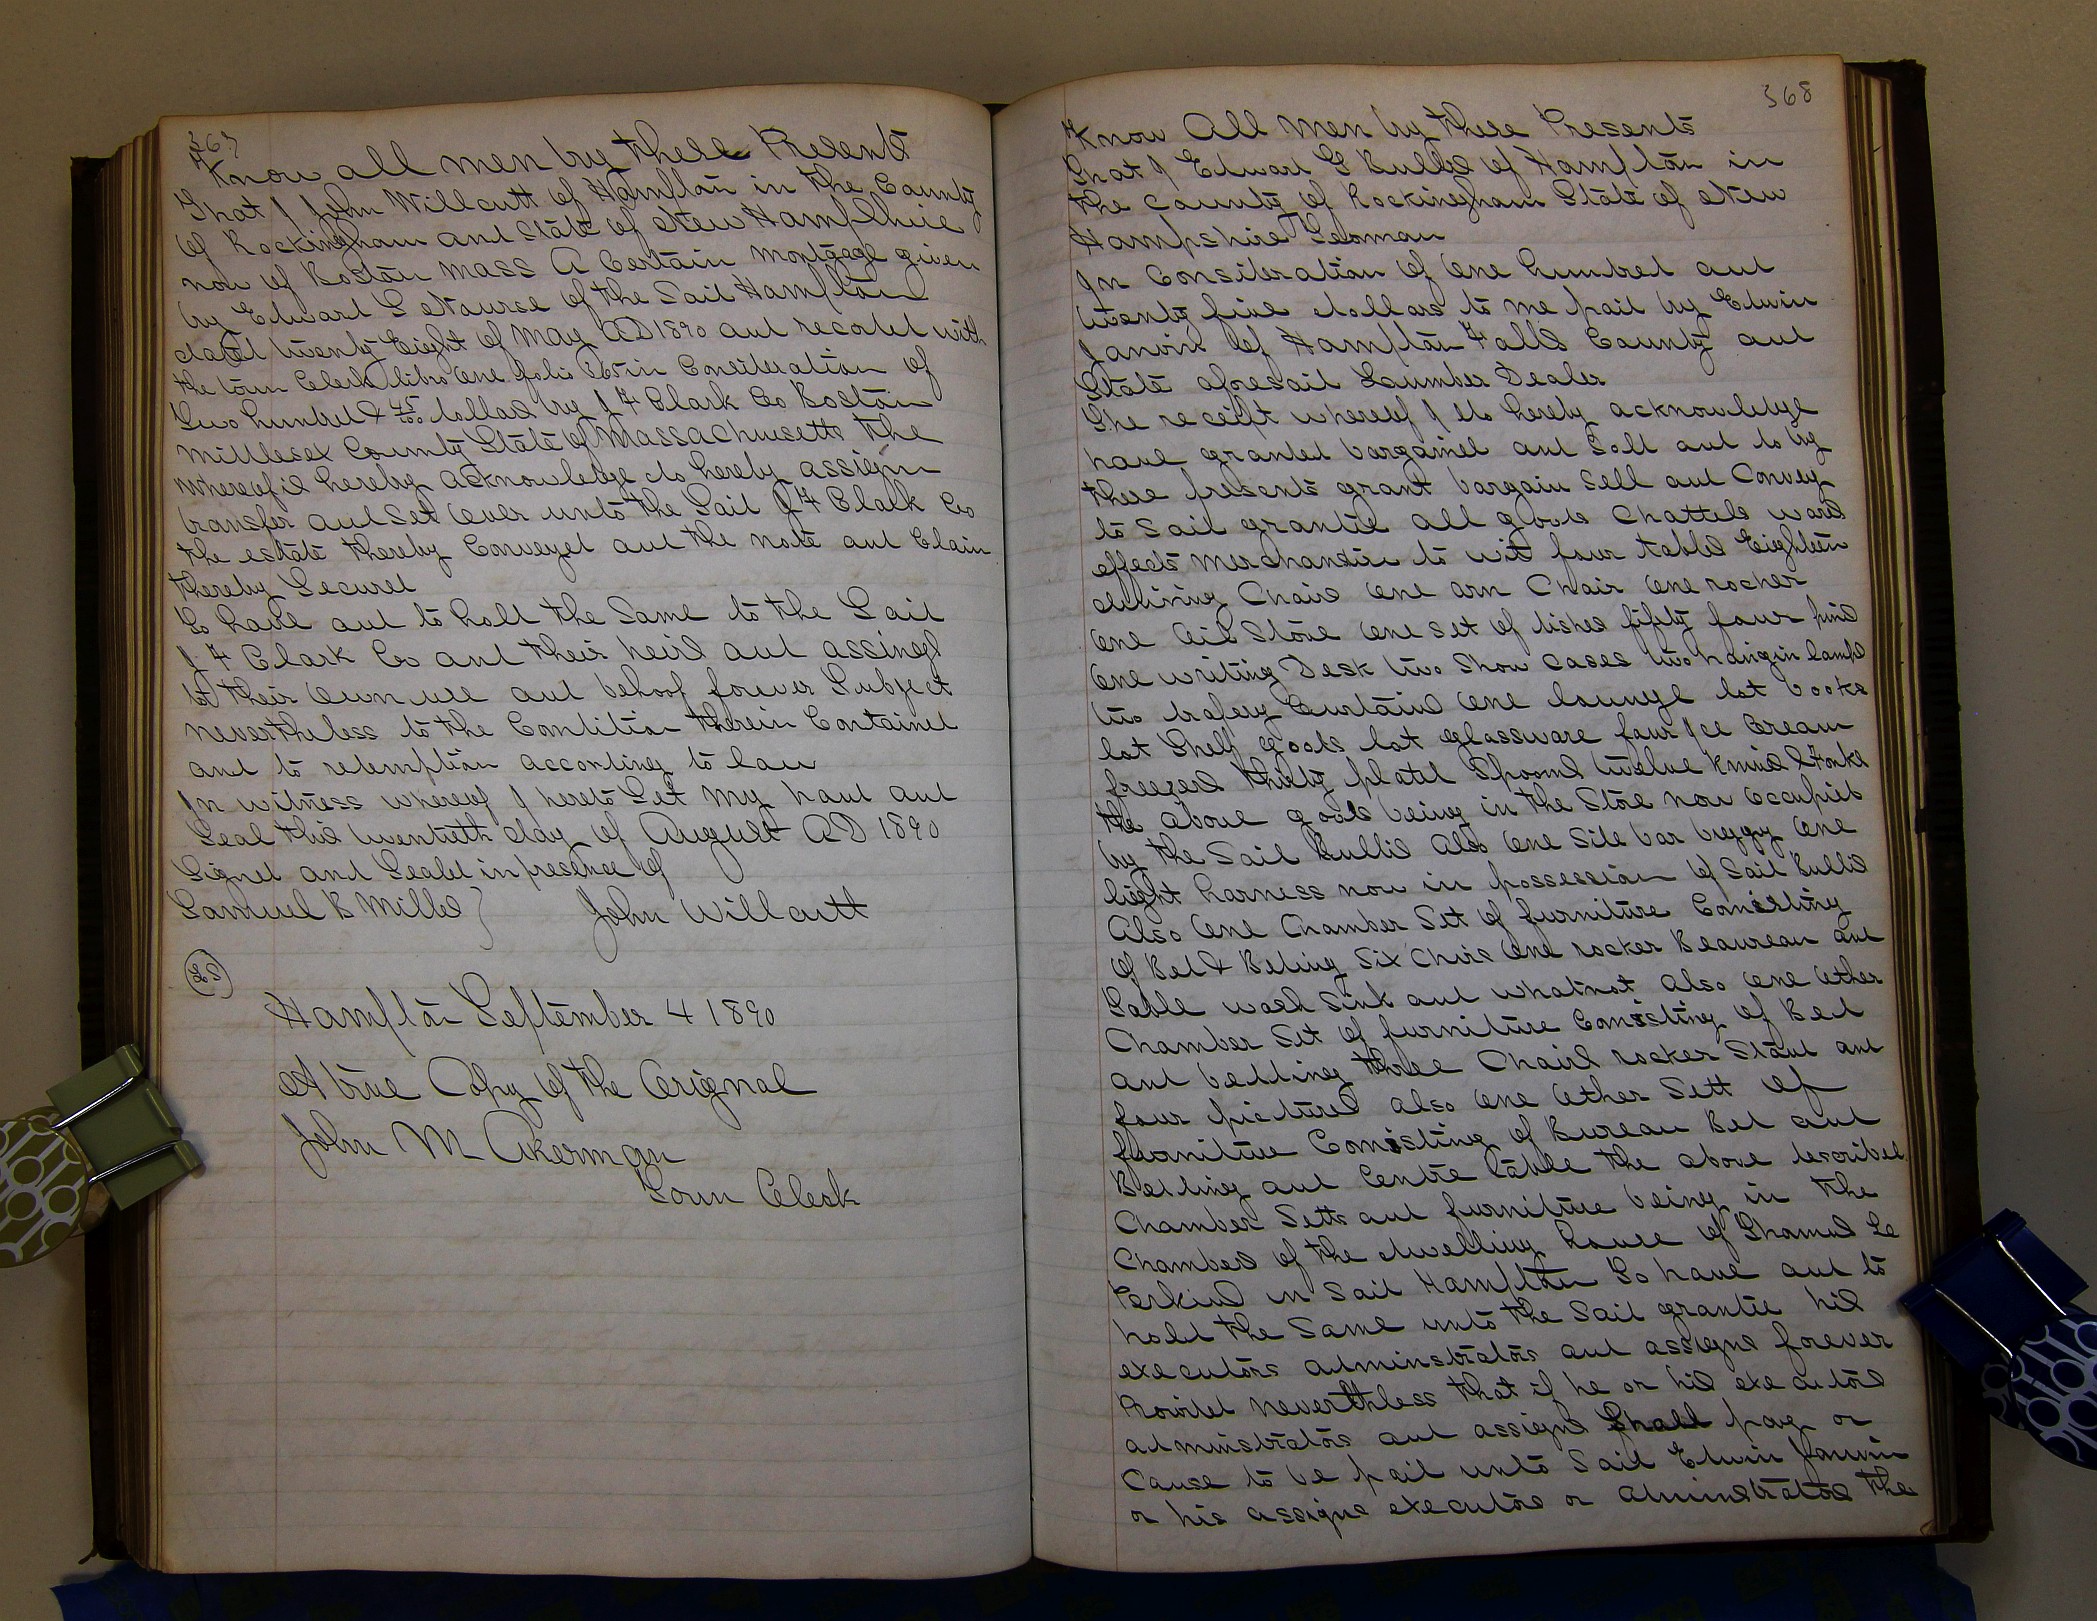 367
Know all men by these Presents
That I John Willcutt of Hampton in the County
of Rockingham and State of New Hampshire
now of Boston Mass A Certain Mortgage given
by Edward G Nourse of the Said Hampton
dated twenty Eight of May AD 1890 and recorded with
the town Clerk libro One folio in Consideration of
Two hundred & 45/100 dollars by J F Clark Co Boston
Middlesex County State of Massachusetts the
whereof is hereby acknowledge do hereby assign
transfer and Set Over unto the Said J F Clark Co
the estate thereby Conveyed and the note and Claim
thereby Secured
To have and to hold the Same to the Said
J F Clark Co and their heirs and assings
to their Own use and behoof forever Subject
nevertheless to the Condition therein Contained
and to redemption according to law
In witness whereof I hereto Set My hand and
Seal this twentieth day of August AD 1890
Signed and Sealed in presence of
Samuel B Mills } John Willcutt
LS
Hampton September 4 1890
A true Copy of the Orignal
John M Akerman
Town Clerk
368
Know All Men by these Presents
That I Edward G Bulls of Hampton in
the County of Rockingham State of New
Hampshire Yeoman
In Consideration of One hundred and
twenty five dollars to me paid by Edwin
Janvin of Hampton Falls County and
State aforesaid Lumber Dealer
The receipt whereof I do hereby acknowledge
have granted bargained and Sold and do by
these presents grant bargain Sell and Convey
to Said grantee all goods Chattels ward
effects Merchandise to wit four tables Eighteen
dinning Chairs One arm Chair One rocker
One Oil Stove One Set of dishes fifty four
One writing Desk two Show Cases two hangin lamps
two drapery Curtains One lounge lot books
lot Shelf goods lot glassware four Ice Cream
freezers thirty plated Spoons twelve Knives & Forks
the above goods being in the Store now Occupied
by the Said Bullis Also One Side bar buggy One
light harness now in possession of Said Bullis
Also One Chamber Set of furniture Consisting
of Bed & Beding Six Chirs One rocker Beaureau and
Table wash Sink and whatnot also One Other
Chamber Set of furniture Consisting of Bed
and bedding three Chairs rocker Stand and
four pictures also One Other Sett of
furniture Consisting of Bureau Bed and
Bedding and Centre table the above described
Chamber Setts and furniture being in the
Chambers of the dwelling house of Thomas Le
Perkins in Said Hampton To have and to
hold the Same unto the Said grantee his
executors adminstrators and assigns forever
Provided nevertheless that if he or his executors
adminstrators and assigns Shall pay or
Cause to be paid unto Said Edwin Janvin
or his assigns executors or adminstrators the